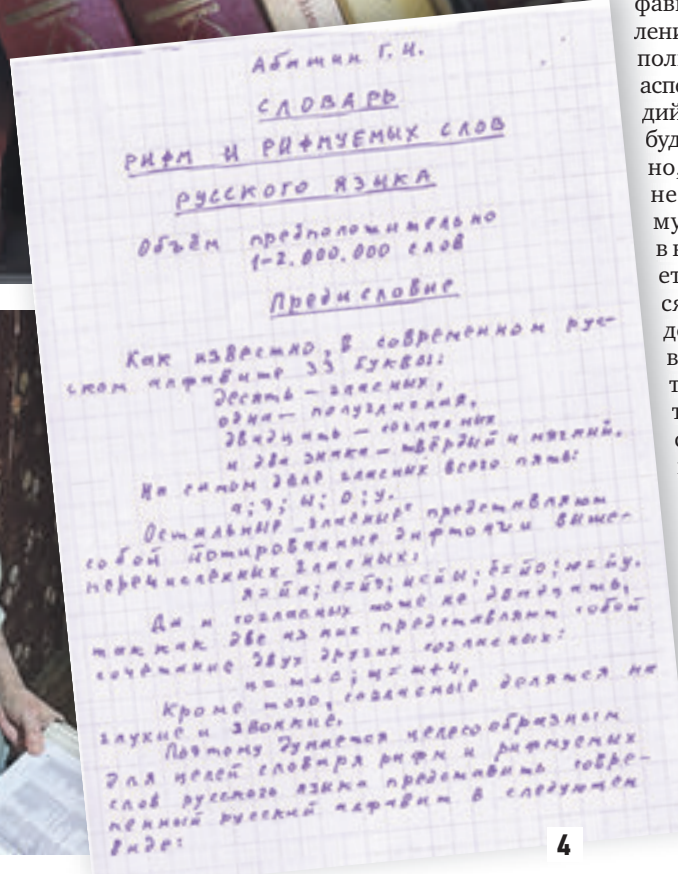 Абашин Г. И.
СЛОВАРЬ
РИФМ И РИФМУЕМЫХ СЛОВ
РУССКОГО ЯЗЫКА
Объём предположительно
1-2.000.000 слов
Предисловие
Как известно, в современном рус-
ском алфавите 33 буквы:
десять – гласных,
одна – полугласная,
двадцать – согласных
и два знака – твёрдый и мягкий.
На самом деле гласных всего пять:
а; э; ы; о; у.
Остальные „гласные" представляют
собой йотированные дифтонги выше-
перечисленных гласных:
я=йа; е=йэ; и=йы; ё=йо; ю=йу.
Да и согласных тоже не двадцать,
так как две из них представляют собой
сочетание двух других согласных:
ц = т+с; щ = ш+ч.
Кроме того, согласные делятся на
глухие и звонкие.
Поэтому думается целесообразным
для целей словаря рифм и рифмуемых
слов русского языка представить совре-
менный русский алфавит в следующем
виде:
4
фави
лени
поль
аспе
дий
буд
но,
не
му
в н
ет
ся
до
в
т
т
с